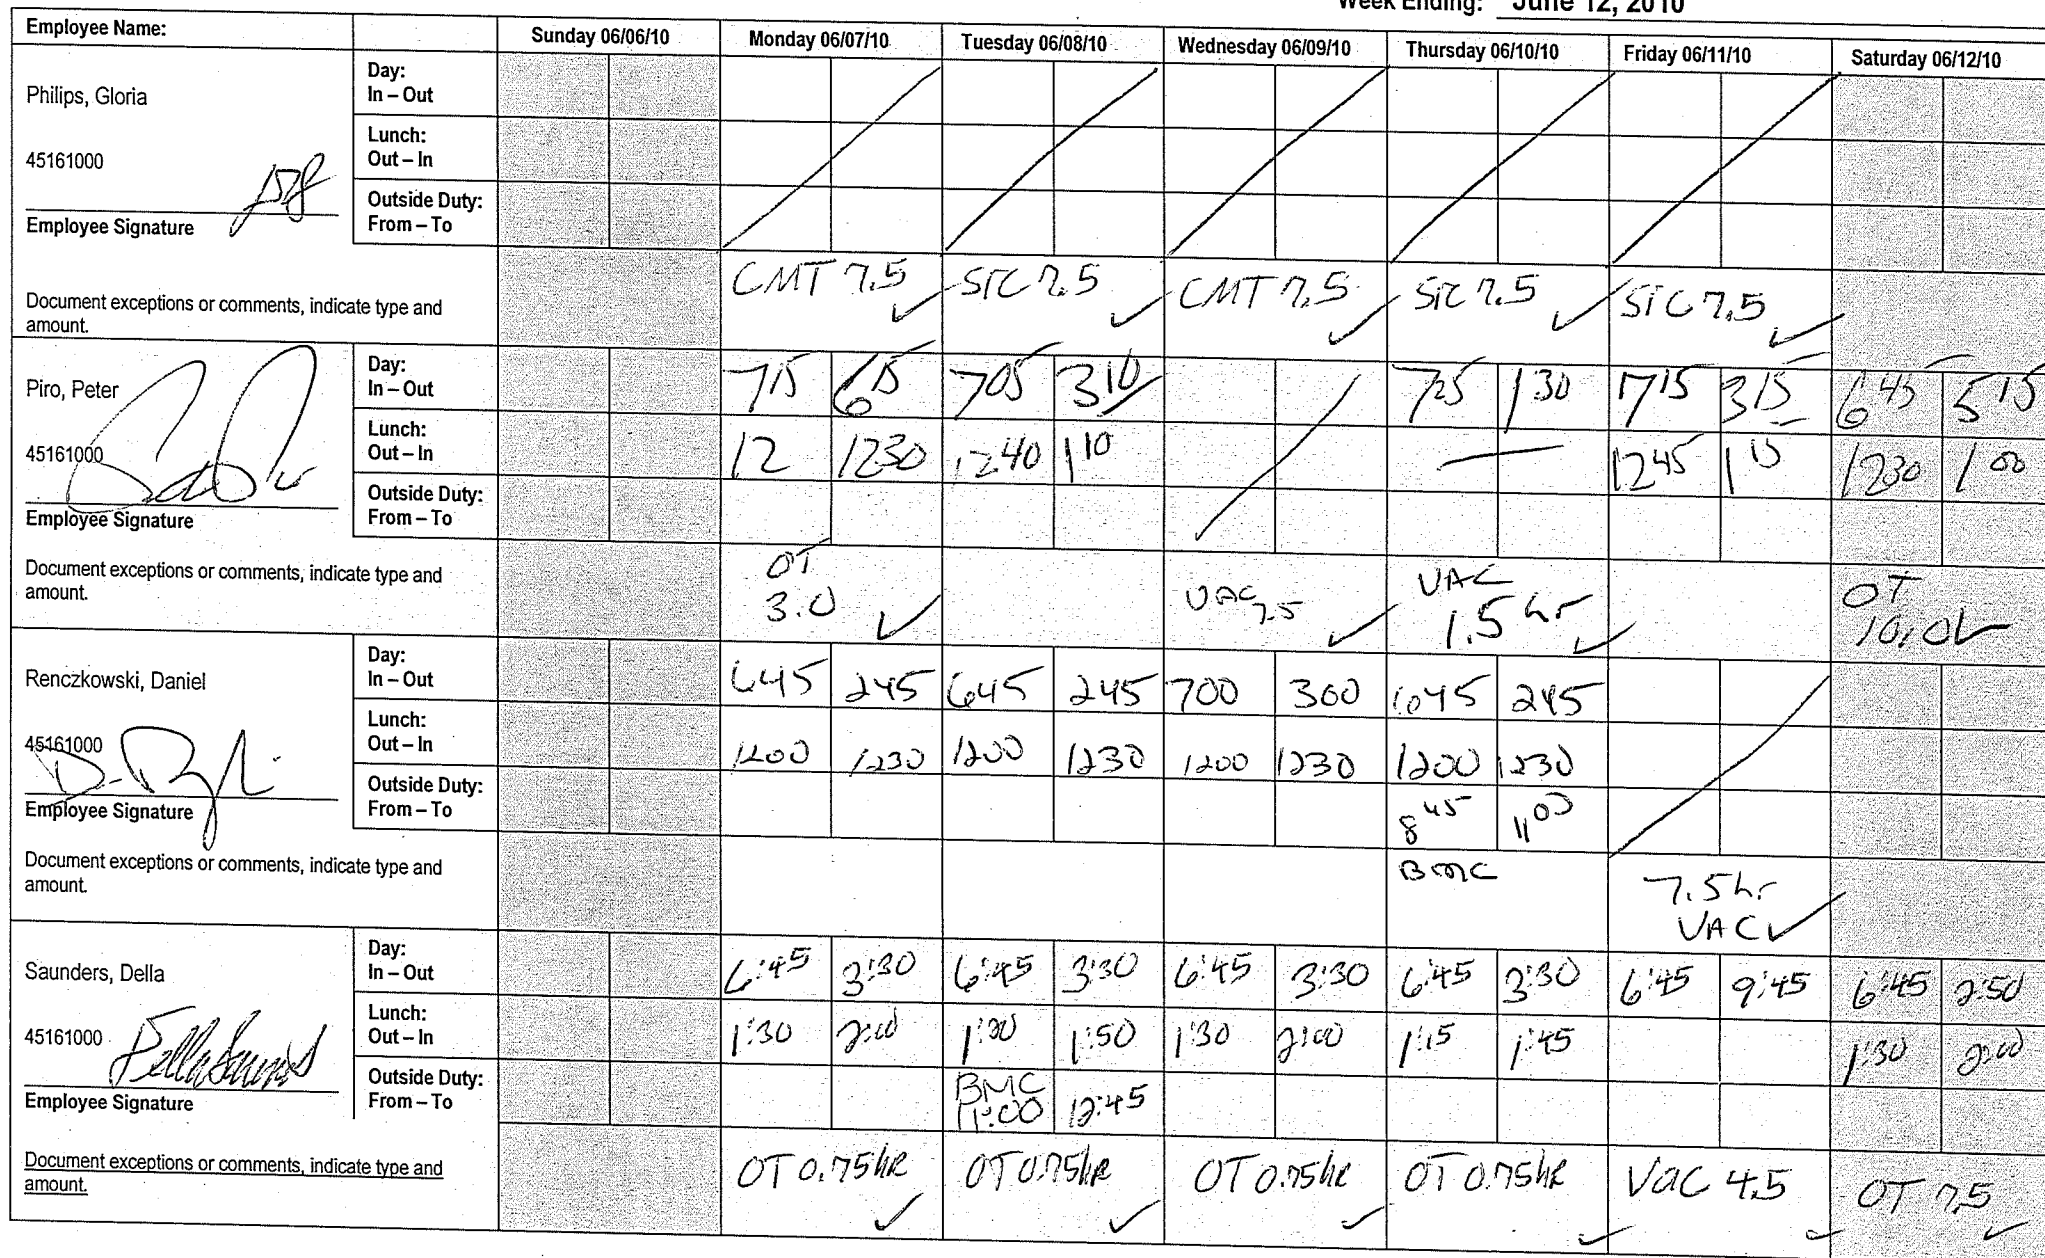 Week Ending: June 12, 2010
Employee Name: Sunday 06/06/10 Monday 06/07/10 Tuesday 06/08/10 Wednesday 06/09/10 Thursday 06/10/10 Friday 06/11/10 Saturday 06/12/10
Philips, Gloria
45161000
Employee Signature
Day:
In – Out
Lunch:
Out – In
Outside Duty:
From – To
Document exceptions or comments, indicate type and
amount.
CMT 7.5 SIC 7.5 CMT 7.5 SIC 7.5 SIC 7.5
Piro, Peter
45161000
Employee Signature
Day:
In – Out
715 615 705 310 725 130 715 315 645 515
Lunch:
Out – In
12 1230 1240 110 1245 115 1230 100
Outside Duty:
From – To
Document exceptions or comments, indicate type and
amount.
OT
3.0
VAC
7.5
VAC
1.5 hr
OT
10.0
Renczkowski, Daniel
45161000
Employee Signature
Day:
In – Out
645 245 645 245 700 300 645 245
Lunch:
Out – In
1200 1230 1200 1230 1200 1230 1200 1230
Outside Duty:
From – To
845 1100
Document exceptions or comments, indicate type and
amount.
BMC
7.5 hr
VAC
Saunders, Della
45161000
Della Saunders
Employee Signature
Day:
In – Out
6:45 3:30 6:45 3:30 6:45 3:30 6:45 3:30 6:45 9:45 6:45 2:50
Lunch:
Out – In
1:30 2:00 1:50 1:30 2:00 1:15 1:45 1:30 2:00
Outside Duty:
From – To
BMC
11:00 12:45
Document exceptions or comments, indicate type and
amount.
OT 0.75hr OT 0.75hr OT 0.75hr OT 0.75hr Vac 4.5 OT 7.5